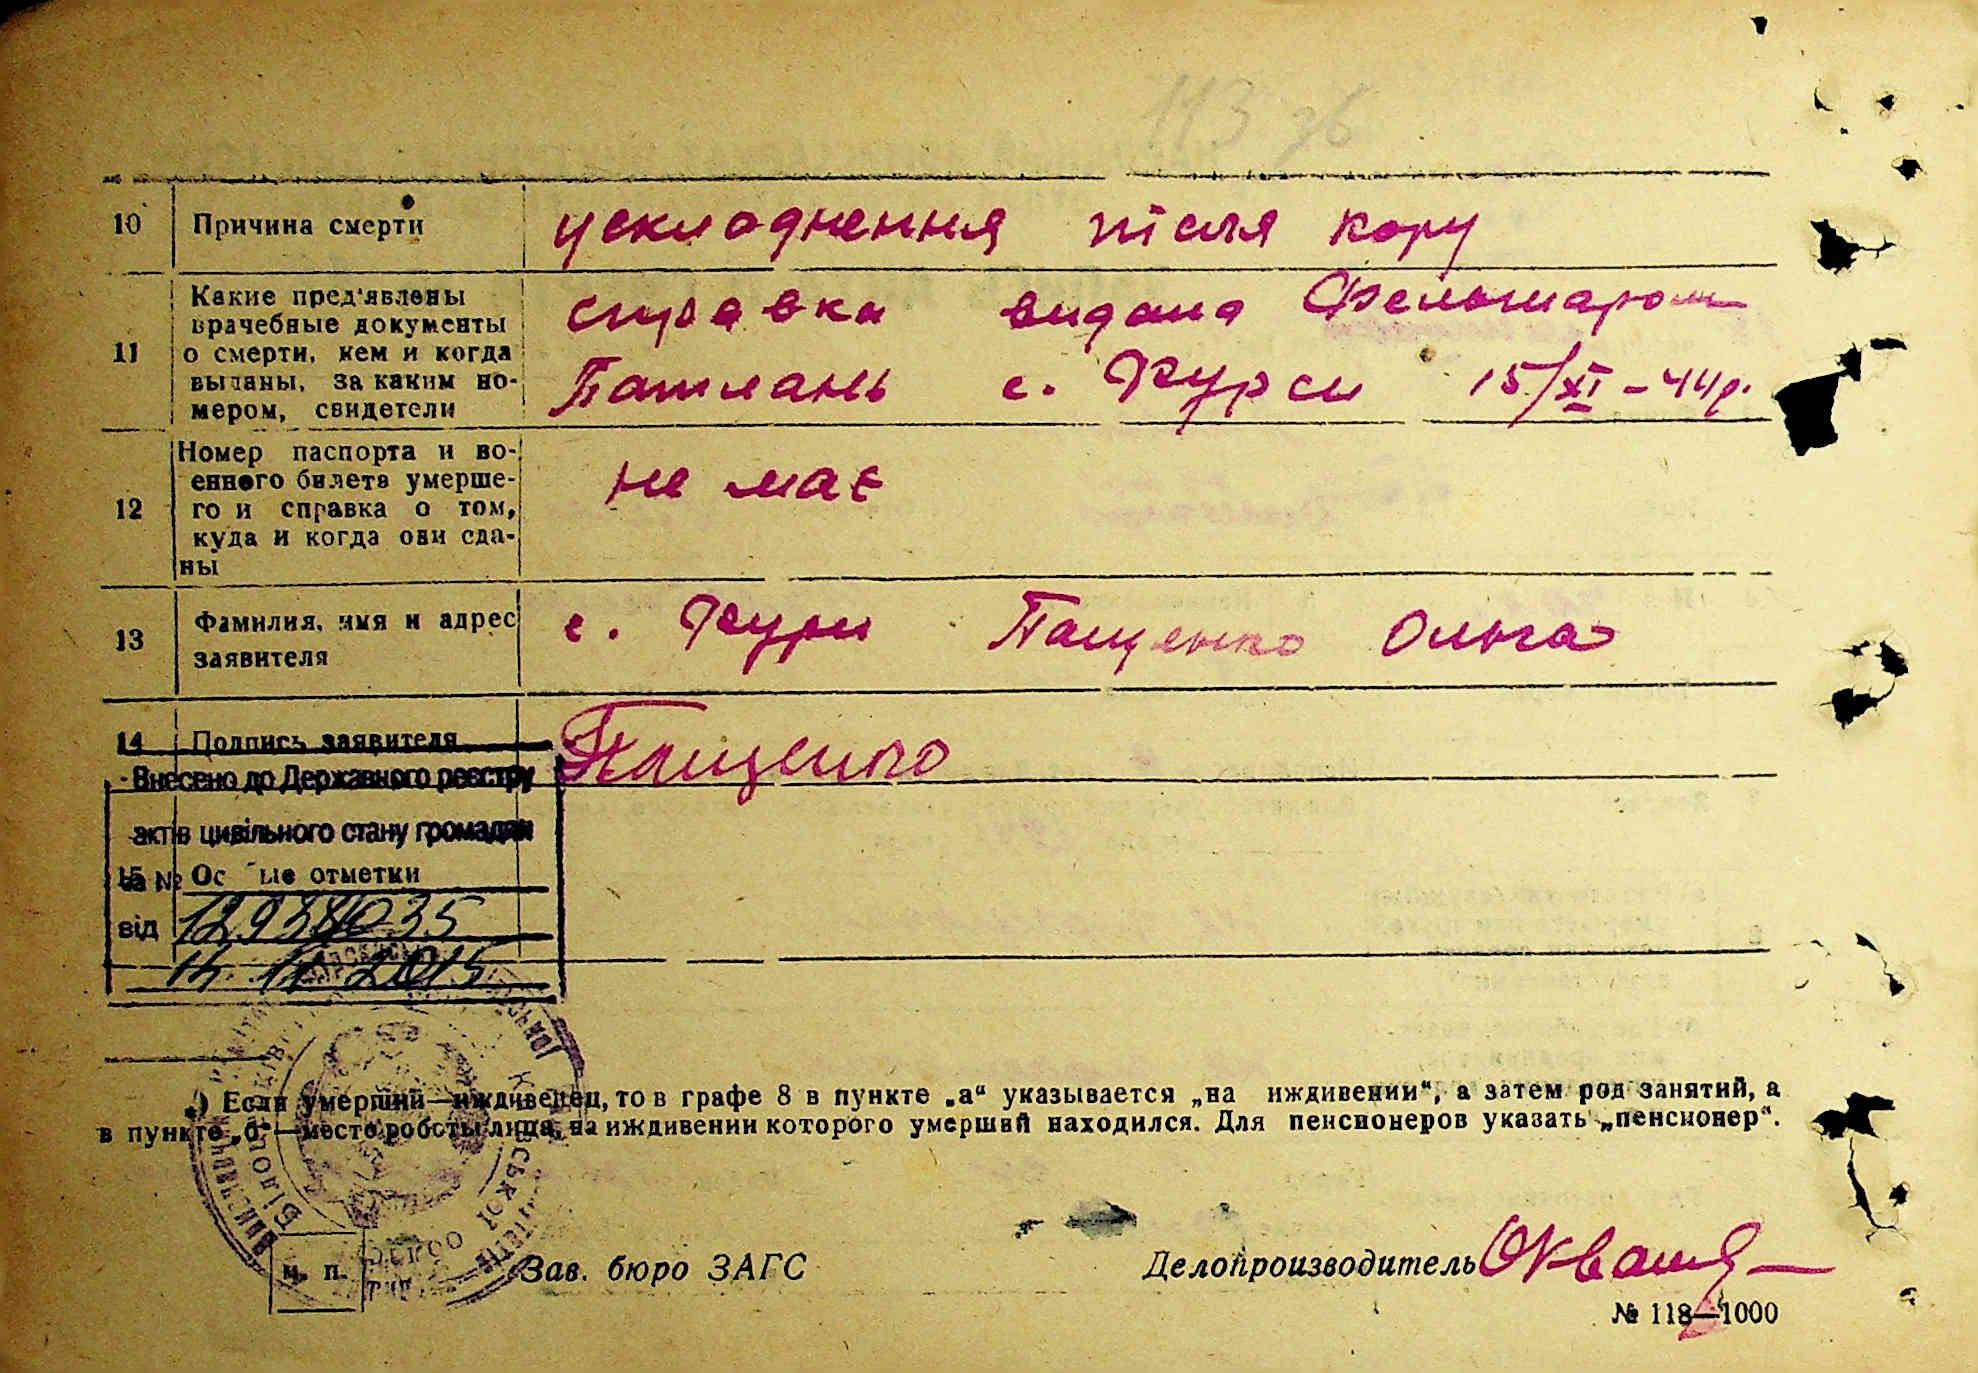 113 зв
10 Причина смерти ускладнення після кору
11 Какие пред'явлены врачебные документы о смерти, кем и когда выданы, за каким номером, свидетели
справка видана Фельшаром
15/XI - 44 р.
12 Номер паспорта и военного билета умершего и справка о том, куда и когда они сданы
не має
13 Фамилия, имя и адрес заявителя
с. Пащенко Ольга
14 Подпись заявителя Пащенко
Внесено до Державного реєстру
актів цивільного стану громадян
15 Особые отметки
за №
від 12938035
14 11 2015
*) Если умерший—иждивенец, то в графе 8 в пункте „а“ указывается „на иждивении“, а затем род занятий, а
в пункте „б“—место роботы лица, на иждивении которого умерший находился. Для пенсионеров указать „пенсионер“.
м. п.
Зав. бюро ЗАГС Делопроизводитель
№ 118—1000